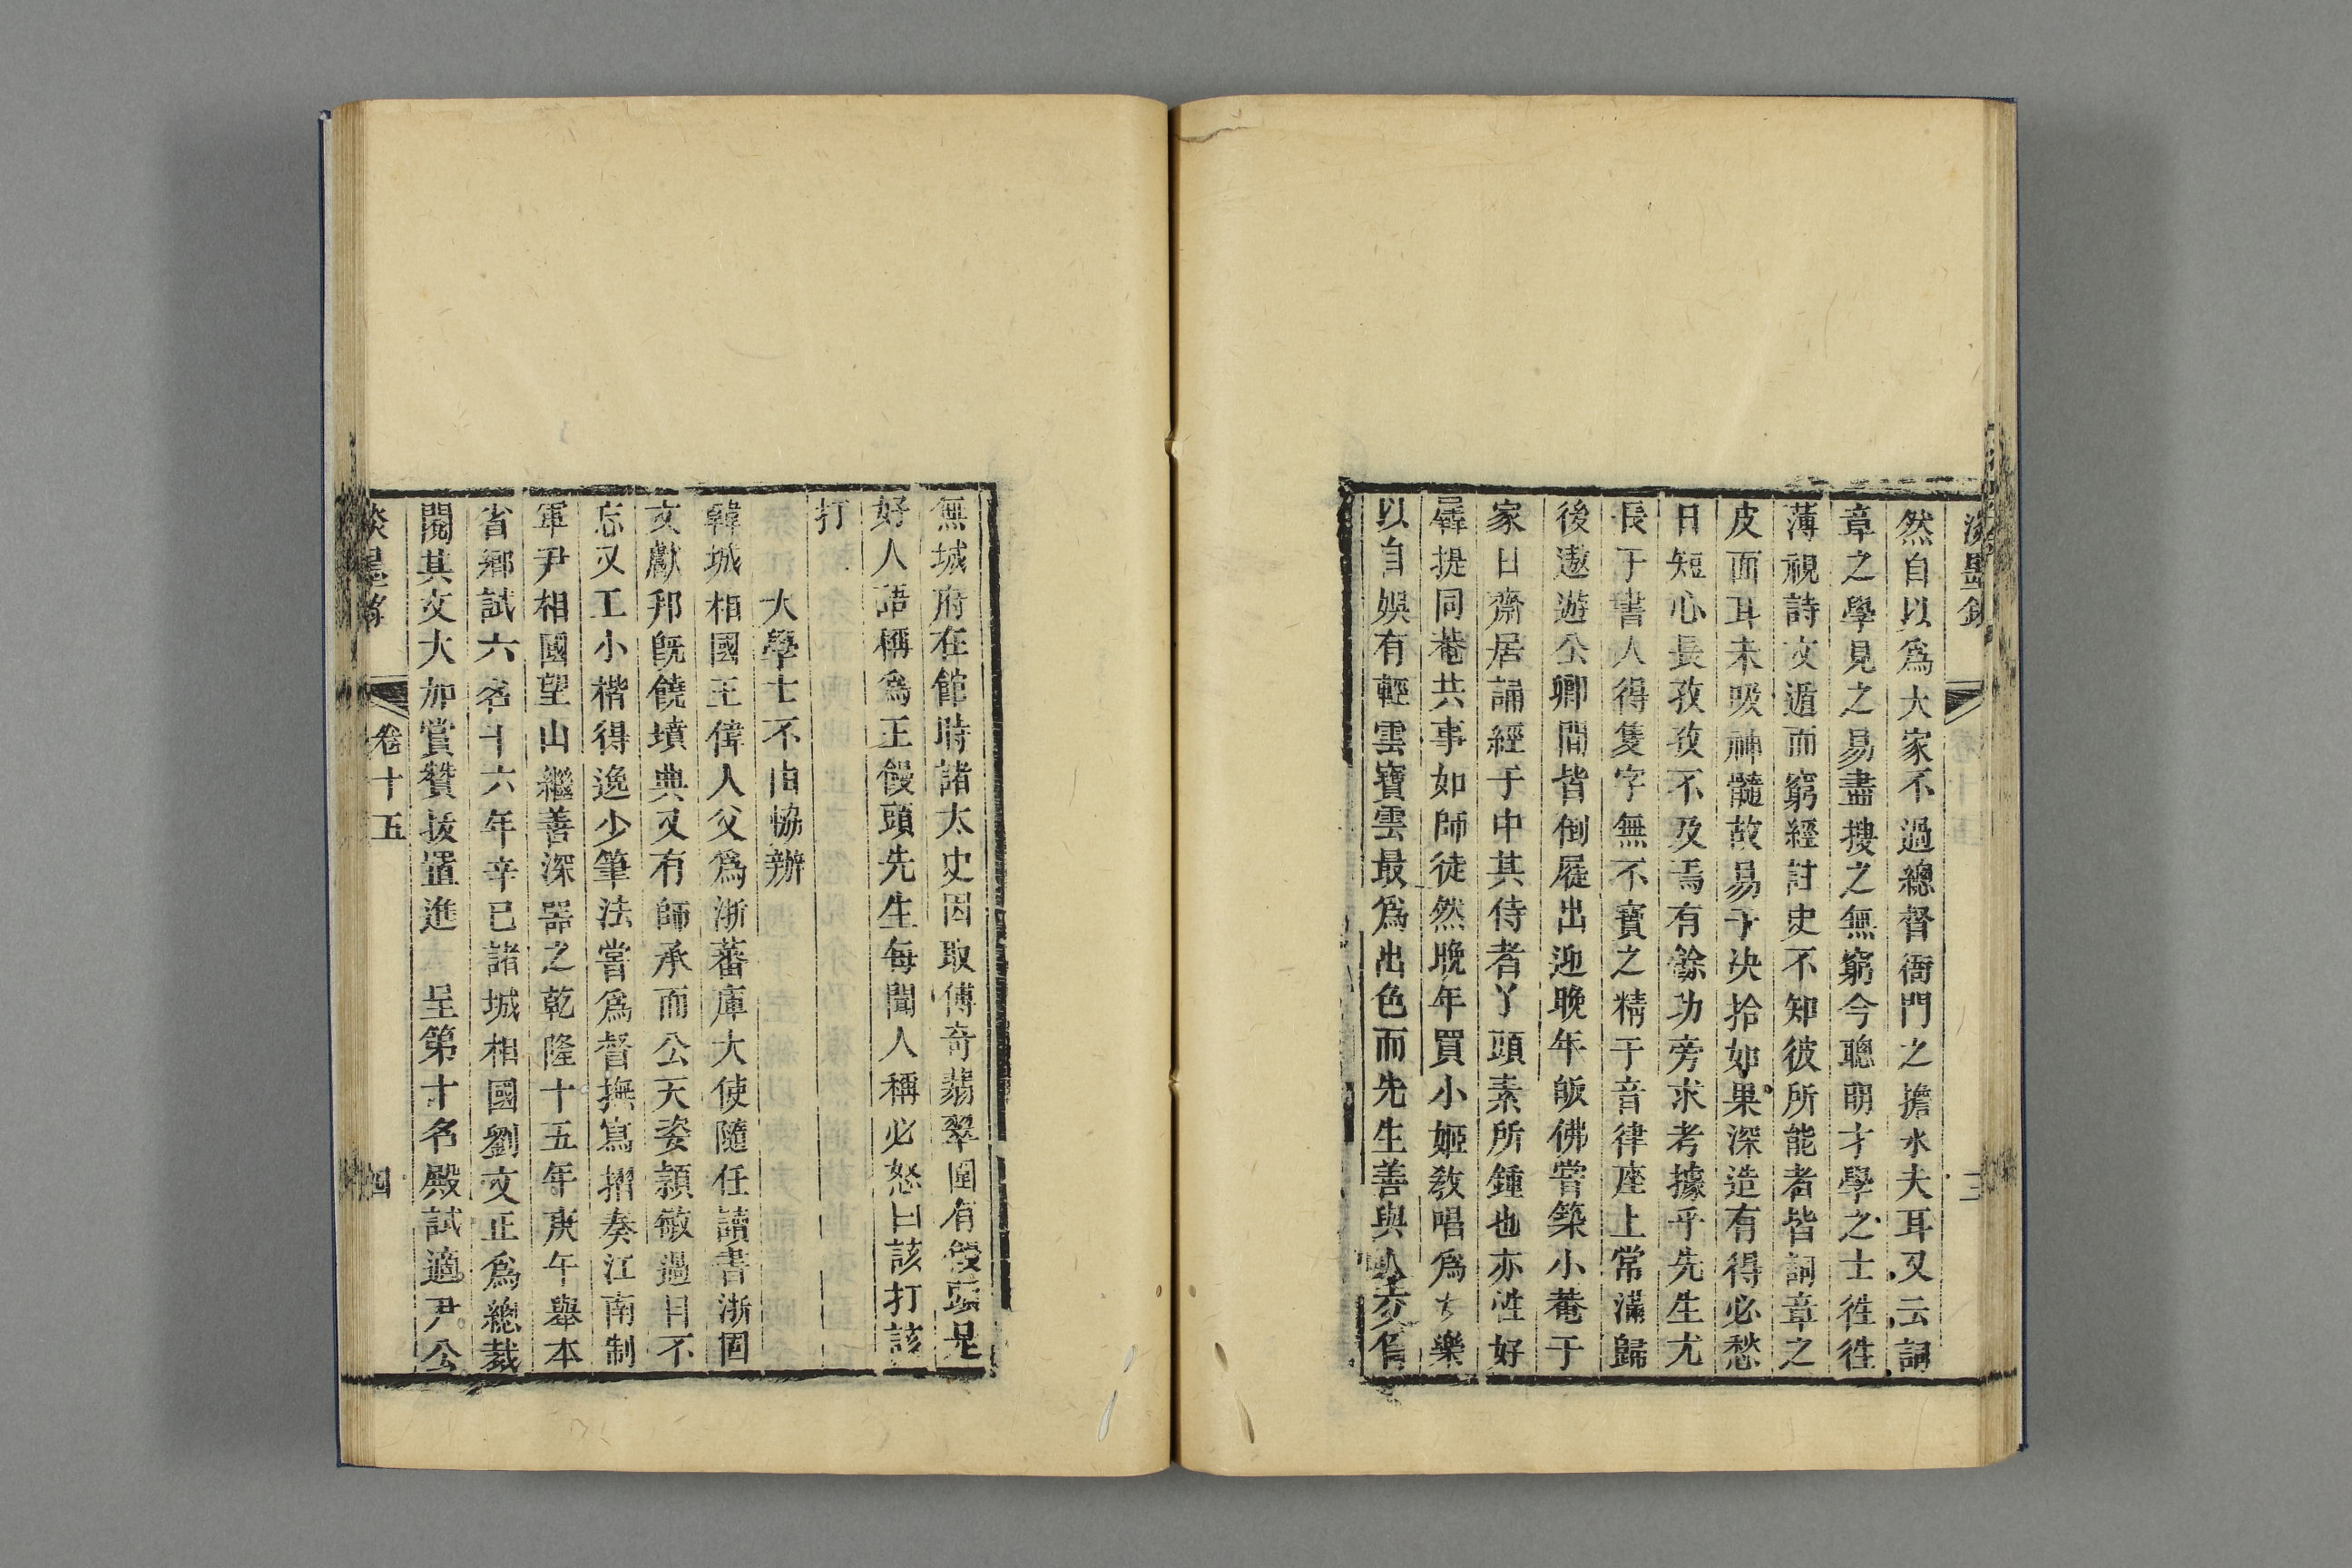 淡墨錄
三
然自以爲大家不過總督衙門之擔水夫耳又云詞
章之學見之易盡搜之無窮今聰明才學之士徃徃
薄視詩文遁而窮經討史不知彼所能者皆詞章之
皮面耳未吸神髓故易于决拾如果深造有得必愁
日短心長孜孜不及焉有餘功旁求考據乎先生尤
長于書人得隻字無不寶之精于音律座上常滿歸
後遨遊公卿間皆倒屣出迎晚年皈佛嘗築小菴于
家日齋居誦經于中其侍者丫頭素所鍾也亦性好
犀提同菴共事如師徒然晚年買小姬敎唱爲女樂
以自娛有輕雲寶雲最爲出色而先生善與人
無城府在館時諸太史因取傅奇翡翠園有饅頭是
好人語稱爲王饅頭先生每聞人稱必怒曰該打該
打
大學士不由協辦
韓城相國王偉人父爲浙藩庫大使隨任讀書浙固
文獻邦旣饒墳典又有師承而公天姿頴敏過目不
忘又工小楷得逸少筆法嘗爲督撫寫摺奏江南制
軍尹相國望山繼善深器之乾隆十五年庚午舉本
省鄉試六名十六年辛巳諸城相國劉文正爲總裁
閱其文大加賞贊拔置進呈第十名殿試適尹公
淡墨錄
卷十五
四